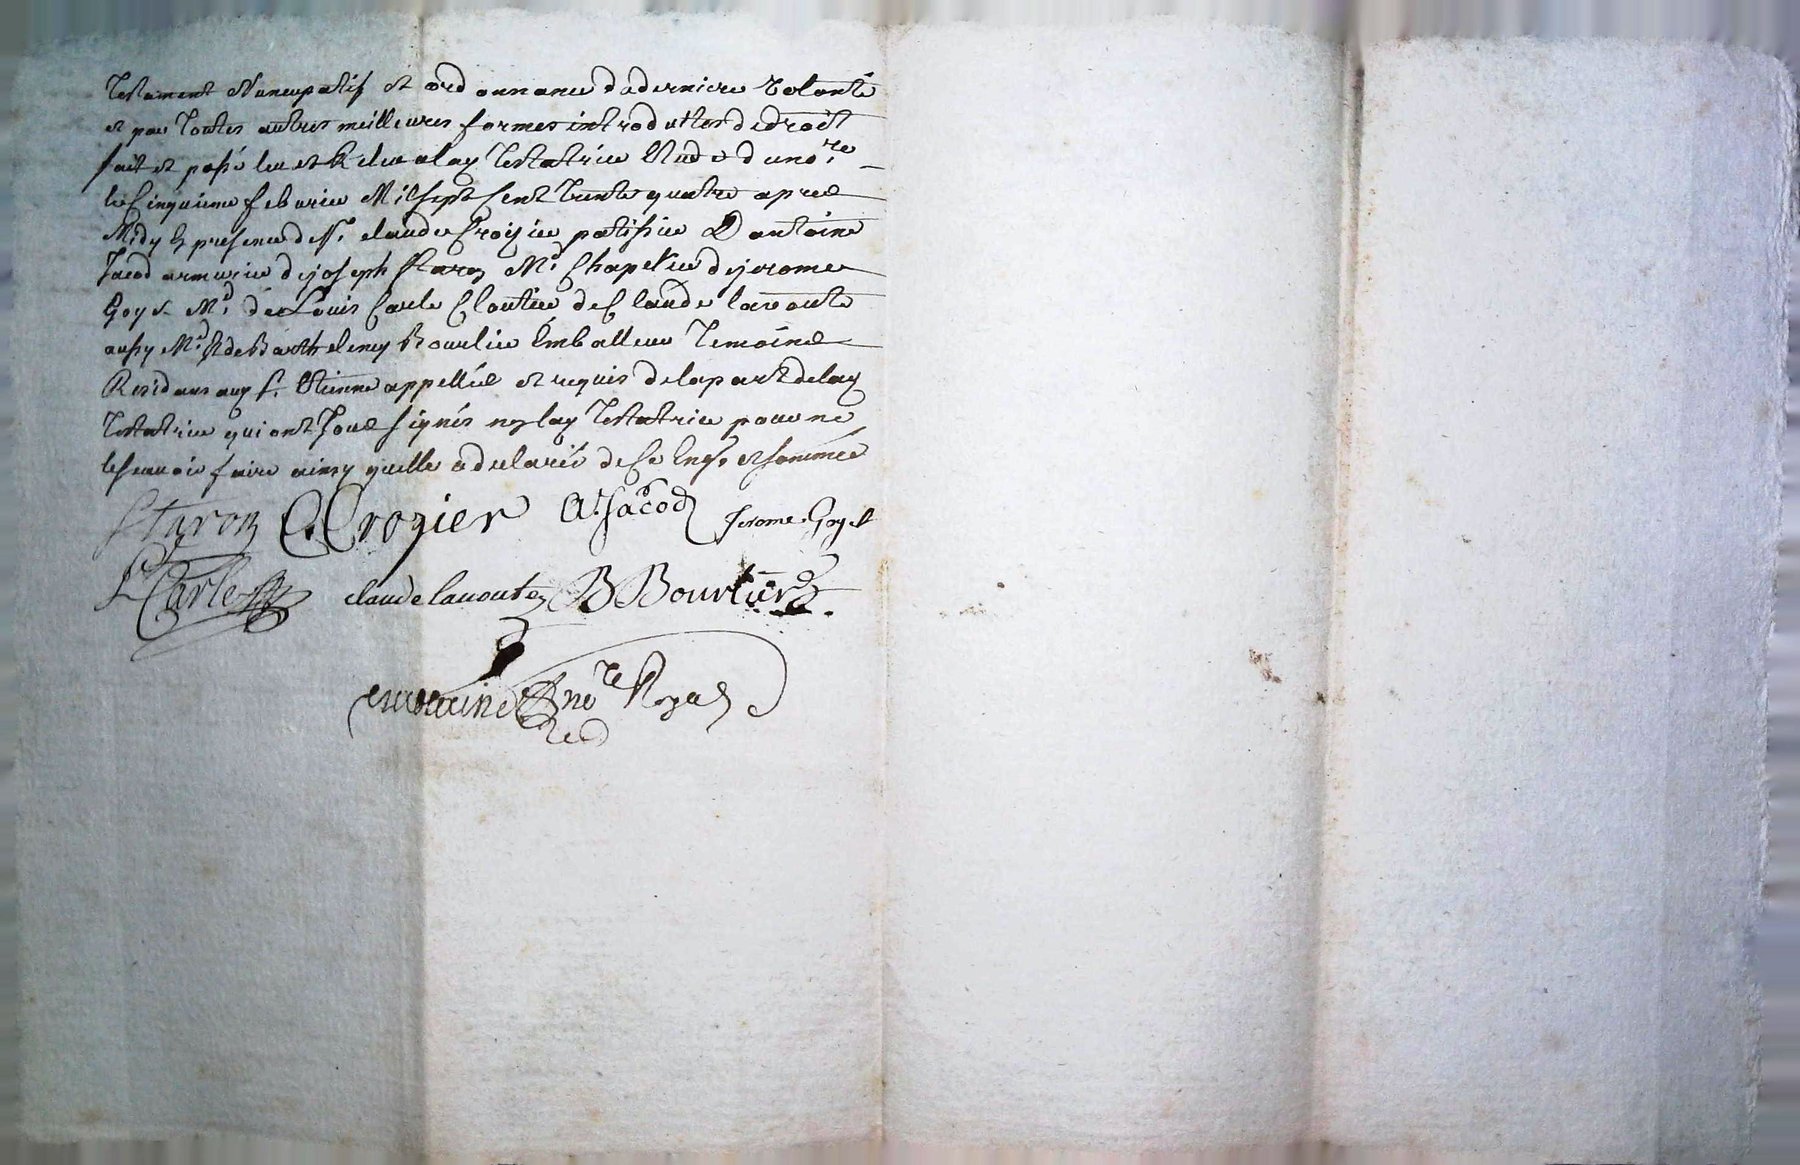 Testament Nuncupatif et ordonnance daderniere volonté
et par toutes autres meilleures formes introduittes de droit
fait et passé leu et Releu a lay Testatrice Etude dud no.re
le Cinquieme febvrier Mil sept Cent trente quatre apres
Midy En presence de Sr. claude Crozier patissier D antoine
Jacod armurier de joseph Staron Md. Chapelier de jerome
Goyet Md. de Louis Carle Cloutier de Claude lavoute
aussy Md. & de Barthelemy Bourlier Emballeur Temoins
Residans auy St. Etienne appellés et requis de la part de lay
Testatrice qui ont sous signés ny lay Testatrice pour ne
le scavoir faire ainsy quelle a declaré de ce Enqs. et sommée
Staron C. Crozier A. Jacod Jerome Goyet
L Carle claude lavoute B Bourlier
no.re Royal